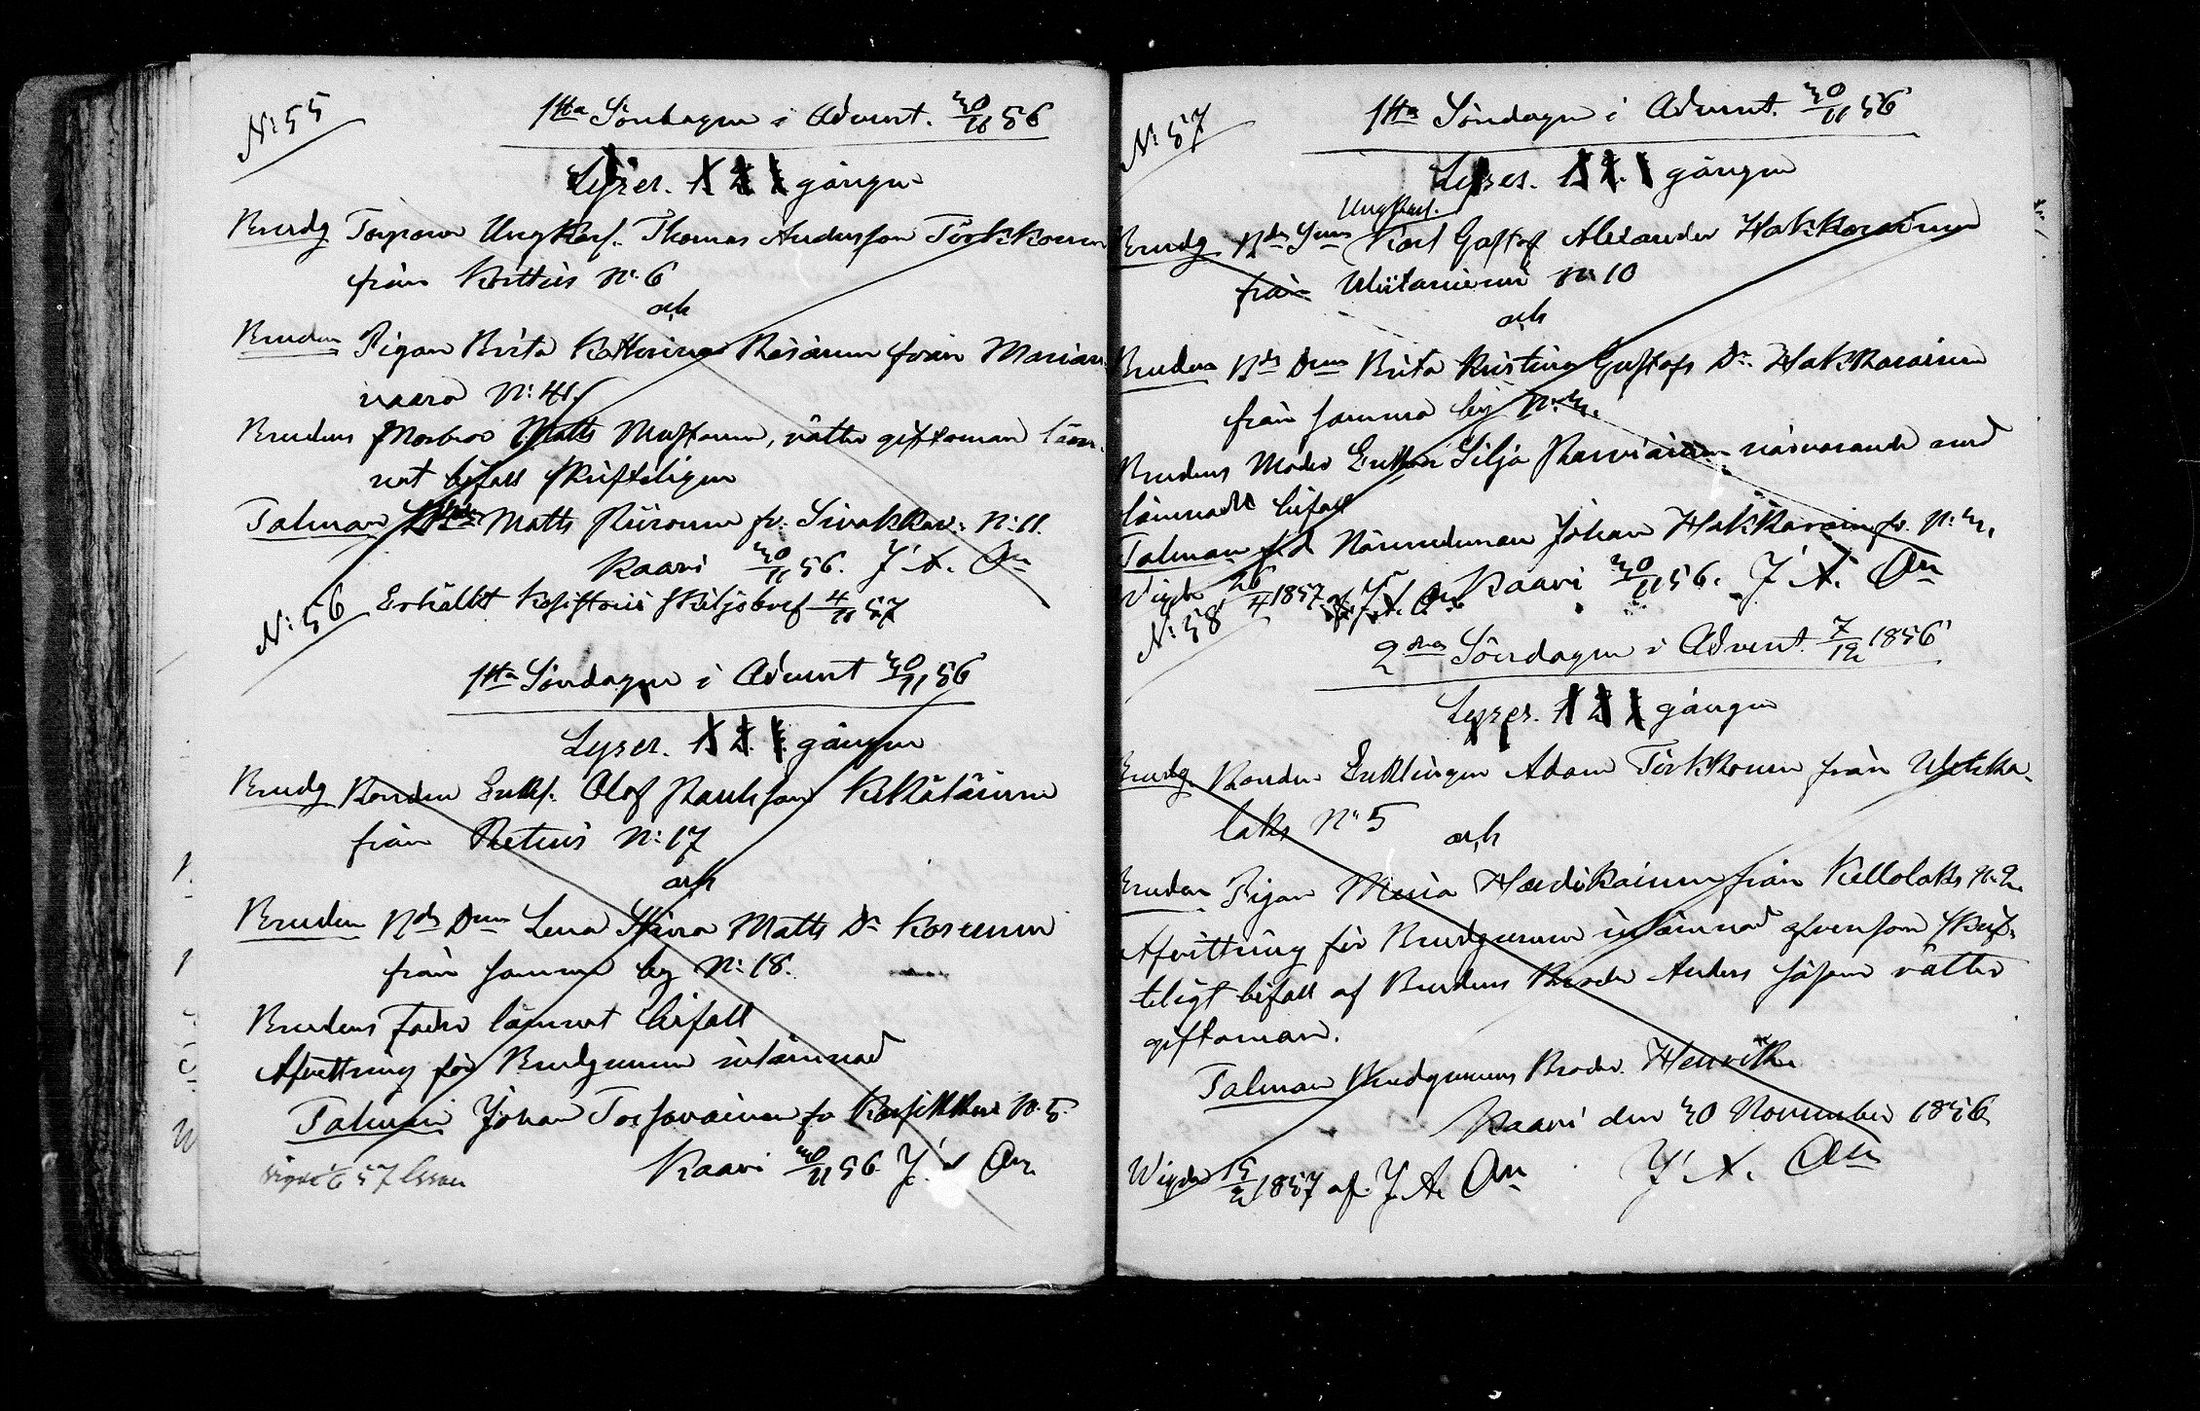 N:55
1sta Söndagen i Advent. 30/11 56
Lyses. 1 2 3 gången
Brudg Torparen Ungkarl. Thomas Andersson Tirkkonen
från Kortteis N:6
och
Bruden Pigan Brita Katharina Räsänen från Marian
vaara N:41.
Brudens Morbror Matts Mustonen, rätter giftoman läm
nat bifall skrifteligen
Talman Matts Piironen fr. Sivakkav: N:11.
Kaavi 30/11 56. J. A. On
Erhållit Konsistorii skiljobref 4/11 57
N:56
1sta Söndagen i Advent 30/11 56
Lyses. 1 2 3 gången
Brudg Bonden Enkl. Olof Paulsson Kekäläinen
från Retuis N:17
och
Bruden Bds Dren Lena Stina Matts Dr Kosunen
från samma by N:18.
Brudens Fader lämnat bifall
Afvittring för Brudgummen inlämnad
Talman Johan Tossavainen fr N:5.
Kaavi 30/11 56 J. A. On
vigde 57
N:57
1sta Söndagen i Advent. 30/11 56
Lyses. 1 2. 3 gången
Ungkarl.
Brudg Bds Sonen Karl Gustaf Alexander Hakkarainen
från Niinivaara N:10
och
Bruden Bds Dren Brita Kristina Gustafs Dr. Hakkarainen
från samma by N:3.
Brudens Moder Enkan Silja Parviainen närvarande med
lämnade bifall
Talman f.d. Nämndeman Johan Hakkarainen fr. N:3.
Vigde 26/4 1857 af J. A. On Kaavi 30/11 56. J. A. On
N:58
2dra Söndagen i Advent 7/12 1856
Lyses. 1 2 3 gången
Brudg. Bonden Enklingen Adam Tirkkonen från Wehka-
laks N:5
och
Bruden Pigan Maria Heikkinen från Kellolaks N:2.
Afvittring för Brudgummen inlämnad äfvensom skrif-
teligt bifall af Brudens Broder Anders såsom rätter
giftoman.
Talman Brudgummens Broder. Henrik
Kaavi den 30 November 1856
J. A. On
Wigde 15/2 1857 af. J. A. On